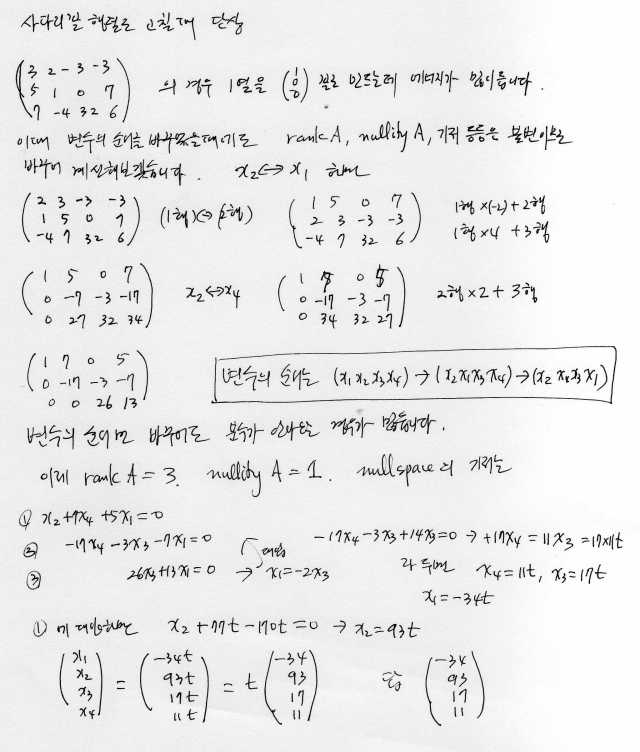 사다리꼴 행렬로 고칠때 단상
(3 2 -3 -3
5 1 0 7
7 -4 32 6) 의 경우 1열을 (1 0 0) 꼴로 만드는데 에너지가 많이듭니다.
이때 변수의 순서를 바꾸었을때에도 rank A, nullity A, 기저 등등은 불변이므로
바꾸어 계산해보겠습니다. x2↔x1 하면
(2 3 -3 -3
1 5 0 7
-4 7 32 6) (1행)↔(2행) (1 5 0 7
2 3 -3 -3
-4 7 32 6) 1행×(-2)+2행
1행×4 +3행
(1 5 0 7
0 -7 -3 -17
0 27 32 34) x2↔x4 (1 7 0 5
0 -17 -3 -7
0 34 32 27) 2행×2+3행
(1 7 0 5
0 -17 -3 -7
0 0 26 13) 변수의 순서는 (x1 x2 x3 x4) → (x2 x1 x3 x4) → (x2 x4 x3 x1)
변수의 순서만 바꾸어도 분수가 안나오는 경우가 많습니다.
이제 rank A = 3. nullity A = 1. nullspace의 기저는
① x2+7x4+5x1=0
② -17x4-3x3-7x1=0 대입 -17x4-3x3+14x3=0 → +17x4=11x3=17×11t
③ 26x3+13x1=0 → x1=-2x3 라 두면 x4=11t, x3=17t
x1=-34t
①에 대입하면 x2+77t-170t=0 → x2=93t
(x1
x2
x3
x4) = (-34t
93t
17t
11t) = t(-34
93
17
11) 답 (-34
93
17
11)